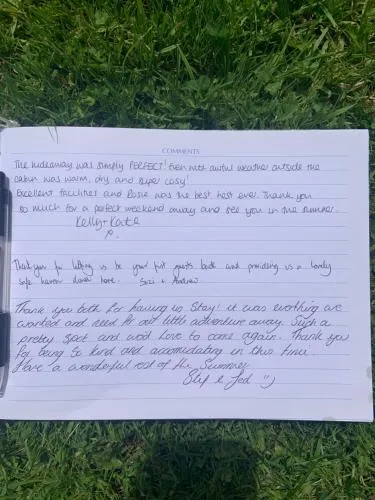 COMMENTS
The hideaway was simply PERFECT! Even with awful weather outside the
cabin was warm, dry and super cosy!
Excellent facilities and Rosie was the best host ever. Thank you
so much for a perfect weekend away and see you in the summer.
Kelly-Kate
x.
Thank you for letting us be your first guests back and providing us a lovely
safe haven down here. Suzi + Andrew
Thank you both for having us stay! it was everthing we
wanted and need for our little adventure away. Such a
pretty spot and wod love to come again. Thank you
for being so kind and accomidating in this time.
Have a wonderful rest of the Summer
& Jed ")